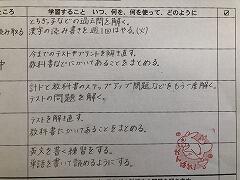 ところ
学習すること いつ、何を、何を使って、どのように
とちぎっ子などの過去問を解く。
読み取る
漢字の読み書きを週1回はやる。(火)
今までのテストやプリントを解き直す。
教科書などにかいてあることをまとめる。
計ドと教科書のステップアップ問題などをもう一度解く。
テストの問題を解く。
テストを解き直す。
教科書にかいてあることをまとめる。
英文を書く練習をする。
単語を書いて読めるようにする。